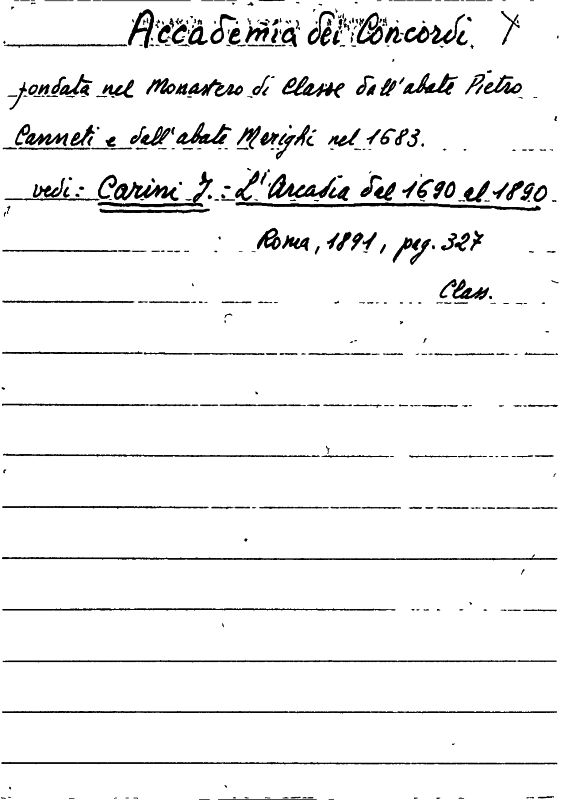 Accademia dei Concordi
fondata nel Monastero di Classe dall'abate Pietro
Canneti e dall'abate Merighi nel 1683.
vedi: Carini J.: L'Arcadia dal 1690 al 1890
Roma, 1891, pag. 327
Class.